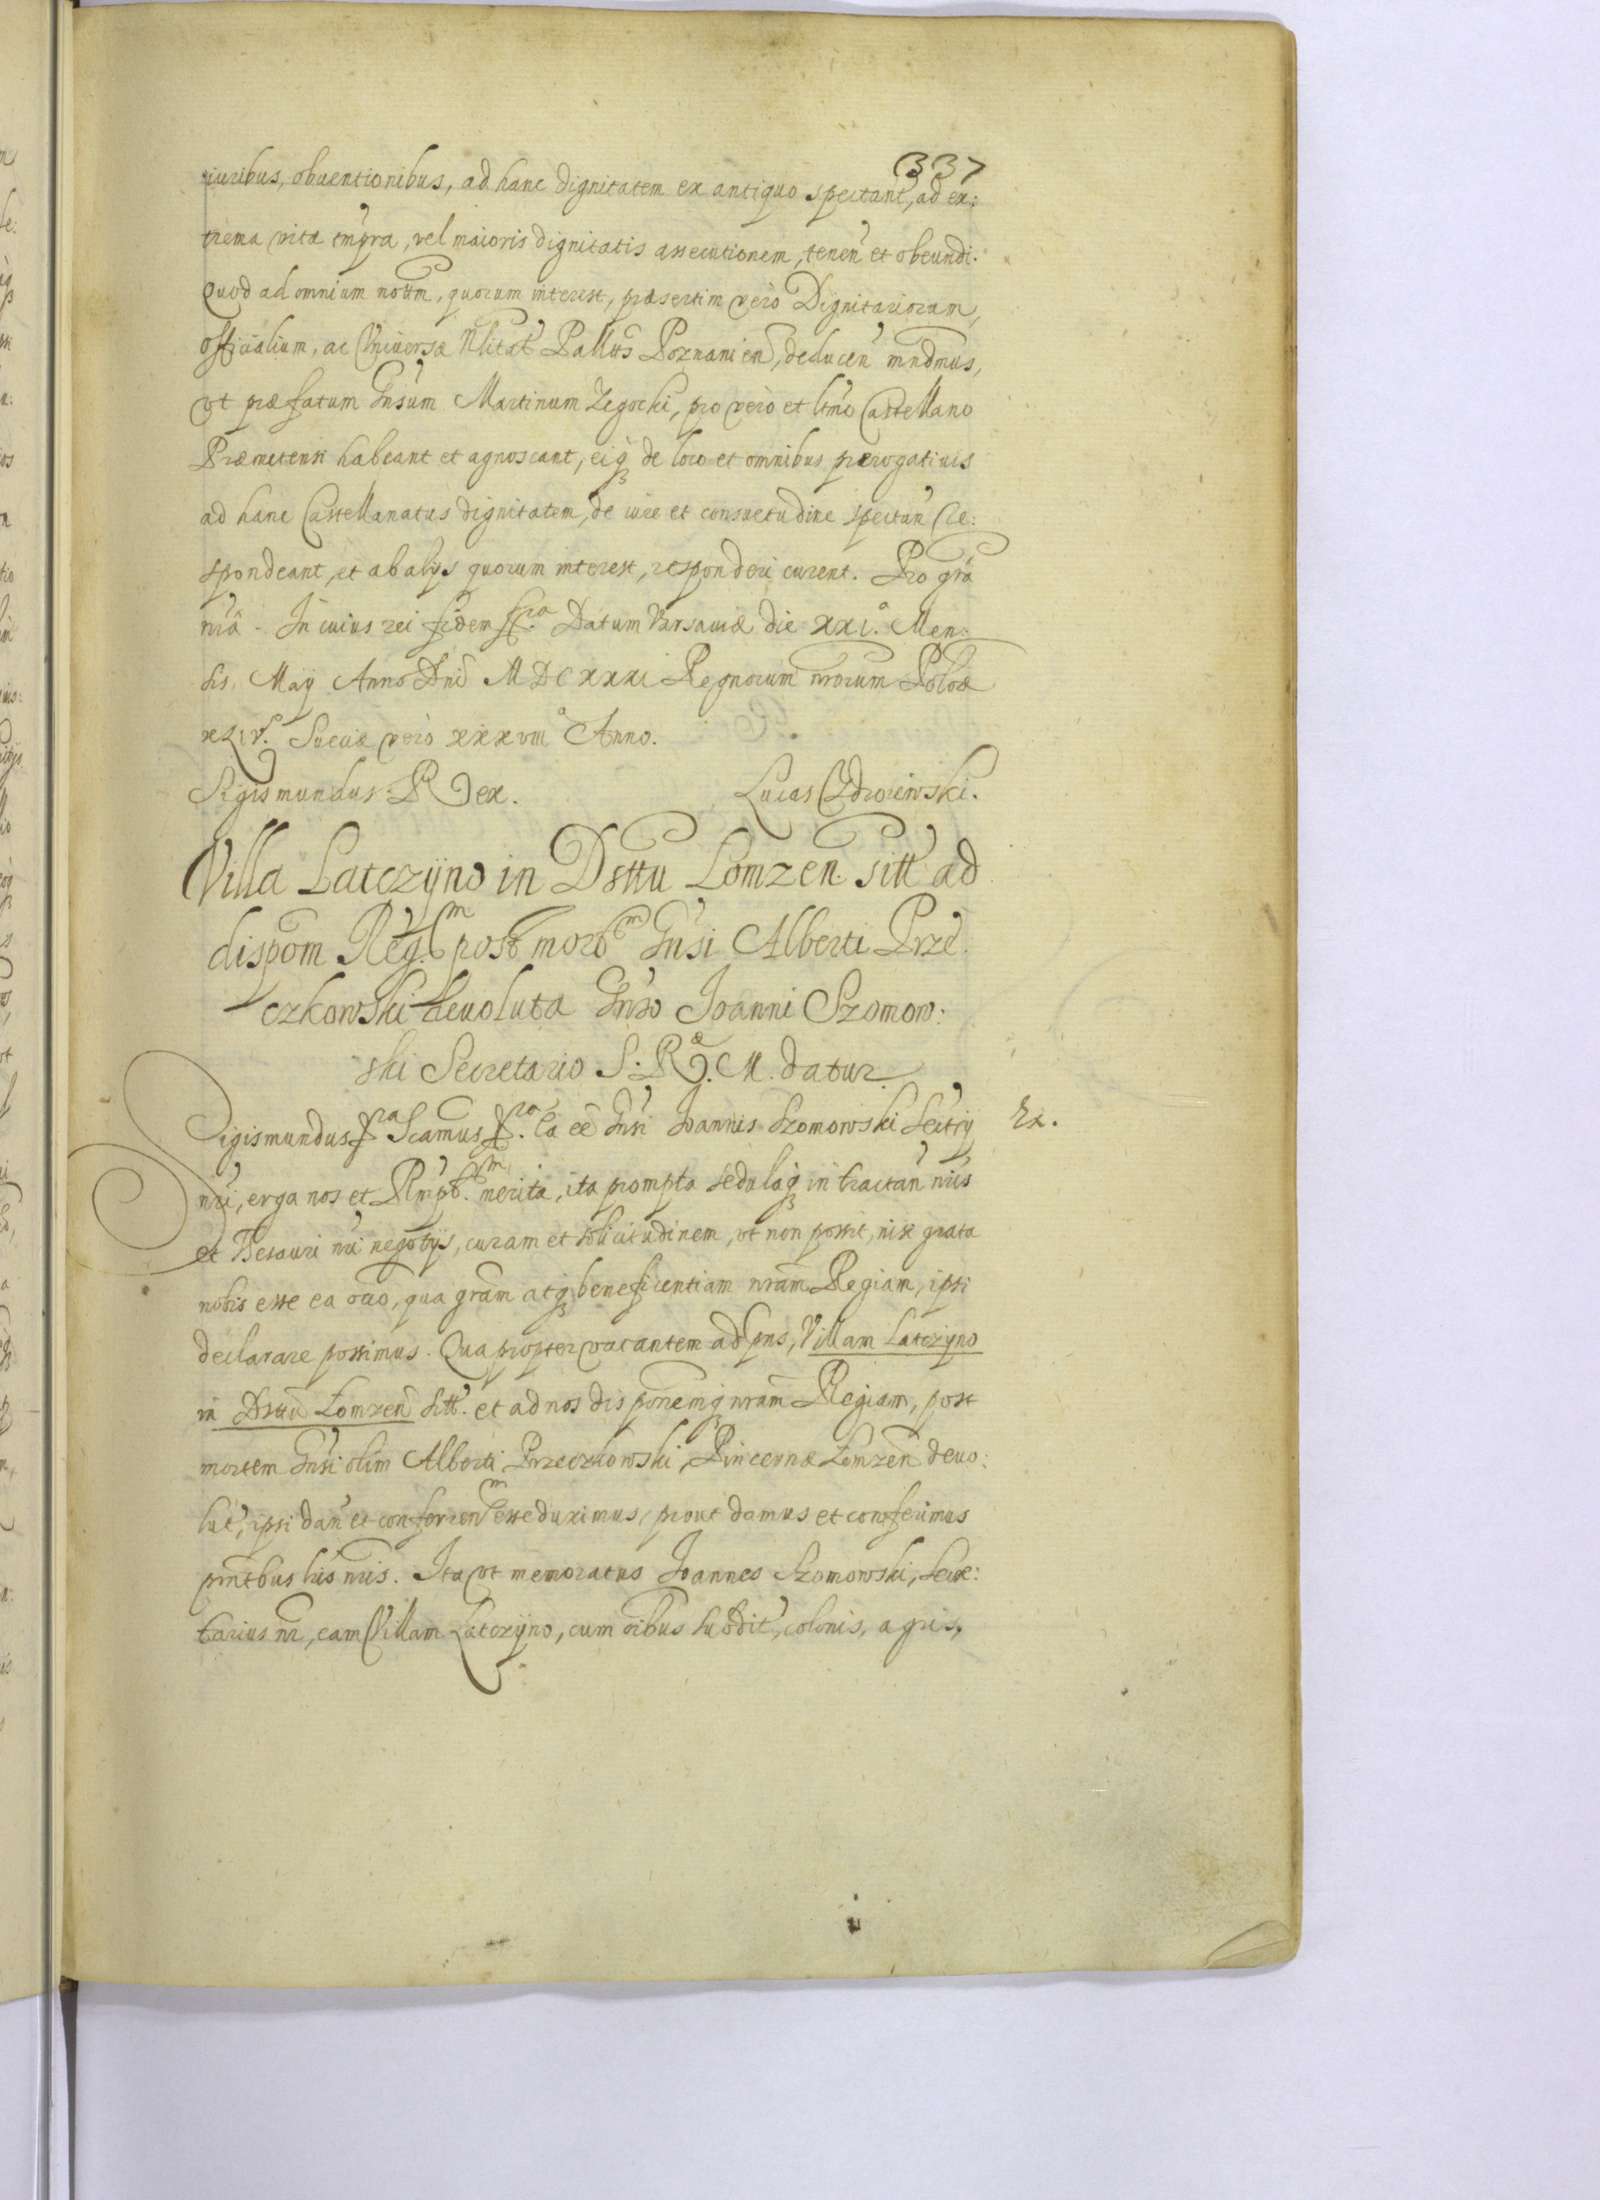 337
iuribus, obuentionibus, ad hanc dignitatem ex antiquo spectant, ad ex:
trema vitæ tmpra, vel maioris dignitatis assecutionem, tenen et obeundi.
Quod ad omnium notm, quorum interest, præsertim vero Dignitariorum,
officialium, ac Vniversæ Nlitat Pallus Poznanien, deducen mndmus,
vt præfatum Gnsum Martinum Zegocki, pro vero et ltmo Castellano
Præmetensi habeant et agnoscant, eiq de loco et omnibus prærogatiuis
ad hanc Castellanatus dignitatem, de iure et consuetudine spectan Re:
spondeant, et ab alijs quorum interest, responderi curent. Pro gra
nra. In cuius rei fidem Datum Varsauiæ die XXI. Men:
sis May Anno Dni MDCXXXI Regnorum nrorum Poloæ
XLIV. Sueciæ vero XXXVIII Anno.
Sigismundus Rex. Lucas Opdroiewski.
Villa Latczÿno in Dsttu Lomzen. sitt ad
dispom Reg. post mort Gnsi Alberti Prze
czkowski deuoluta Gnso Joanni Szomow:
ski Secretario S. R. M. datur
Sigismundus Scamus Ea ee Gnsi Joannis Szomowski Secrtrij Ex.
nri, erga nos et Rmpb. merita, ita prompta sedulaq in tractan nris
et Thesauri nri negotijs, curam et solicitudinem, vt non possit, nise grata
nobis esse ea occo, qua gram atq beneficentiam nram Regiam, ipsi
declarare possimus. Qua propter vacantem ad pns, Villam Latczÿno
in Dsttu Lomzen sitt. et ad nos disponemq nram Regiam, post
mortem Gnsi olim Alberti Przeczkowski, Pincernæ Lomzen deuo:
lut, ipsi dan et conferen esse duximus, prout damus et conferimus
prntbus his nris. Ita vt memoratus Joannes Szomowski, Secre:
tarius nr, eam Villam Latczÿno, cum oibus subdit, colonis, agris,